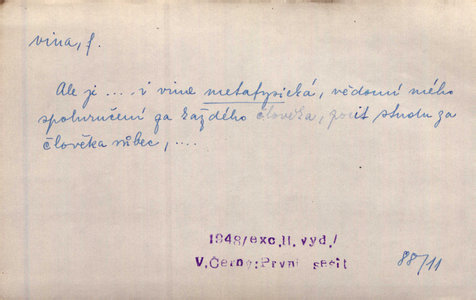 vina, f.
Ale je .... i vina metafysická, vědomí mého
spoluručení za každého člověka, pocit studu za
člověka vůbec, ....
1948/exc.II.vyd./
V.Černý:První sešit
88/11